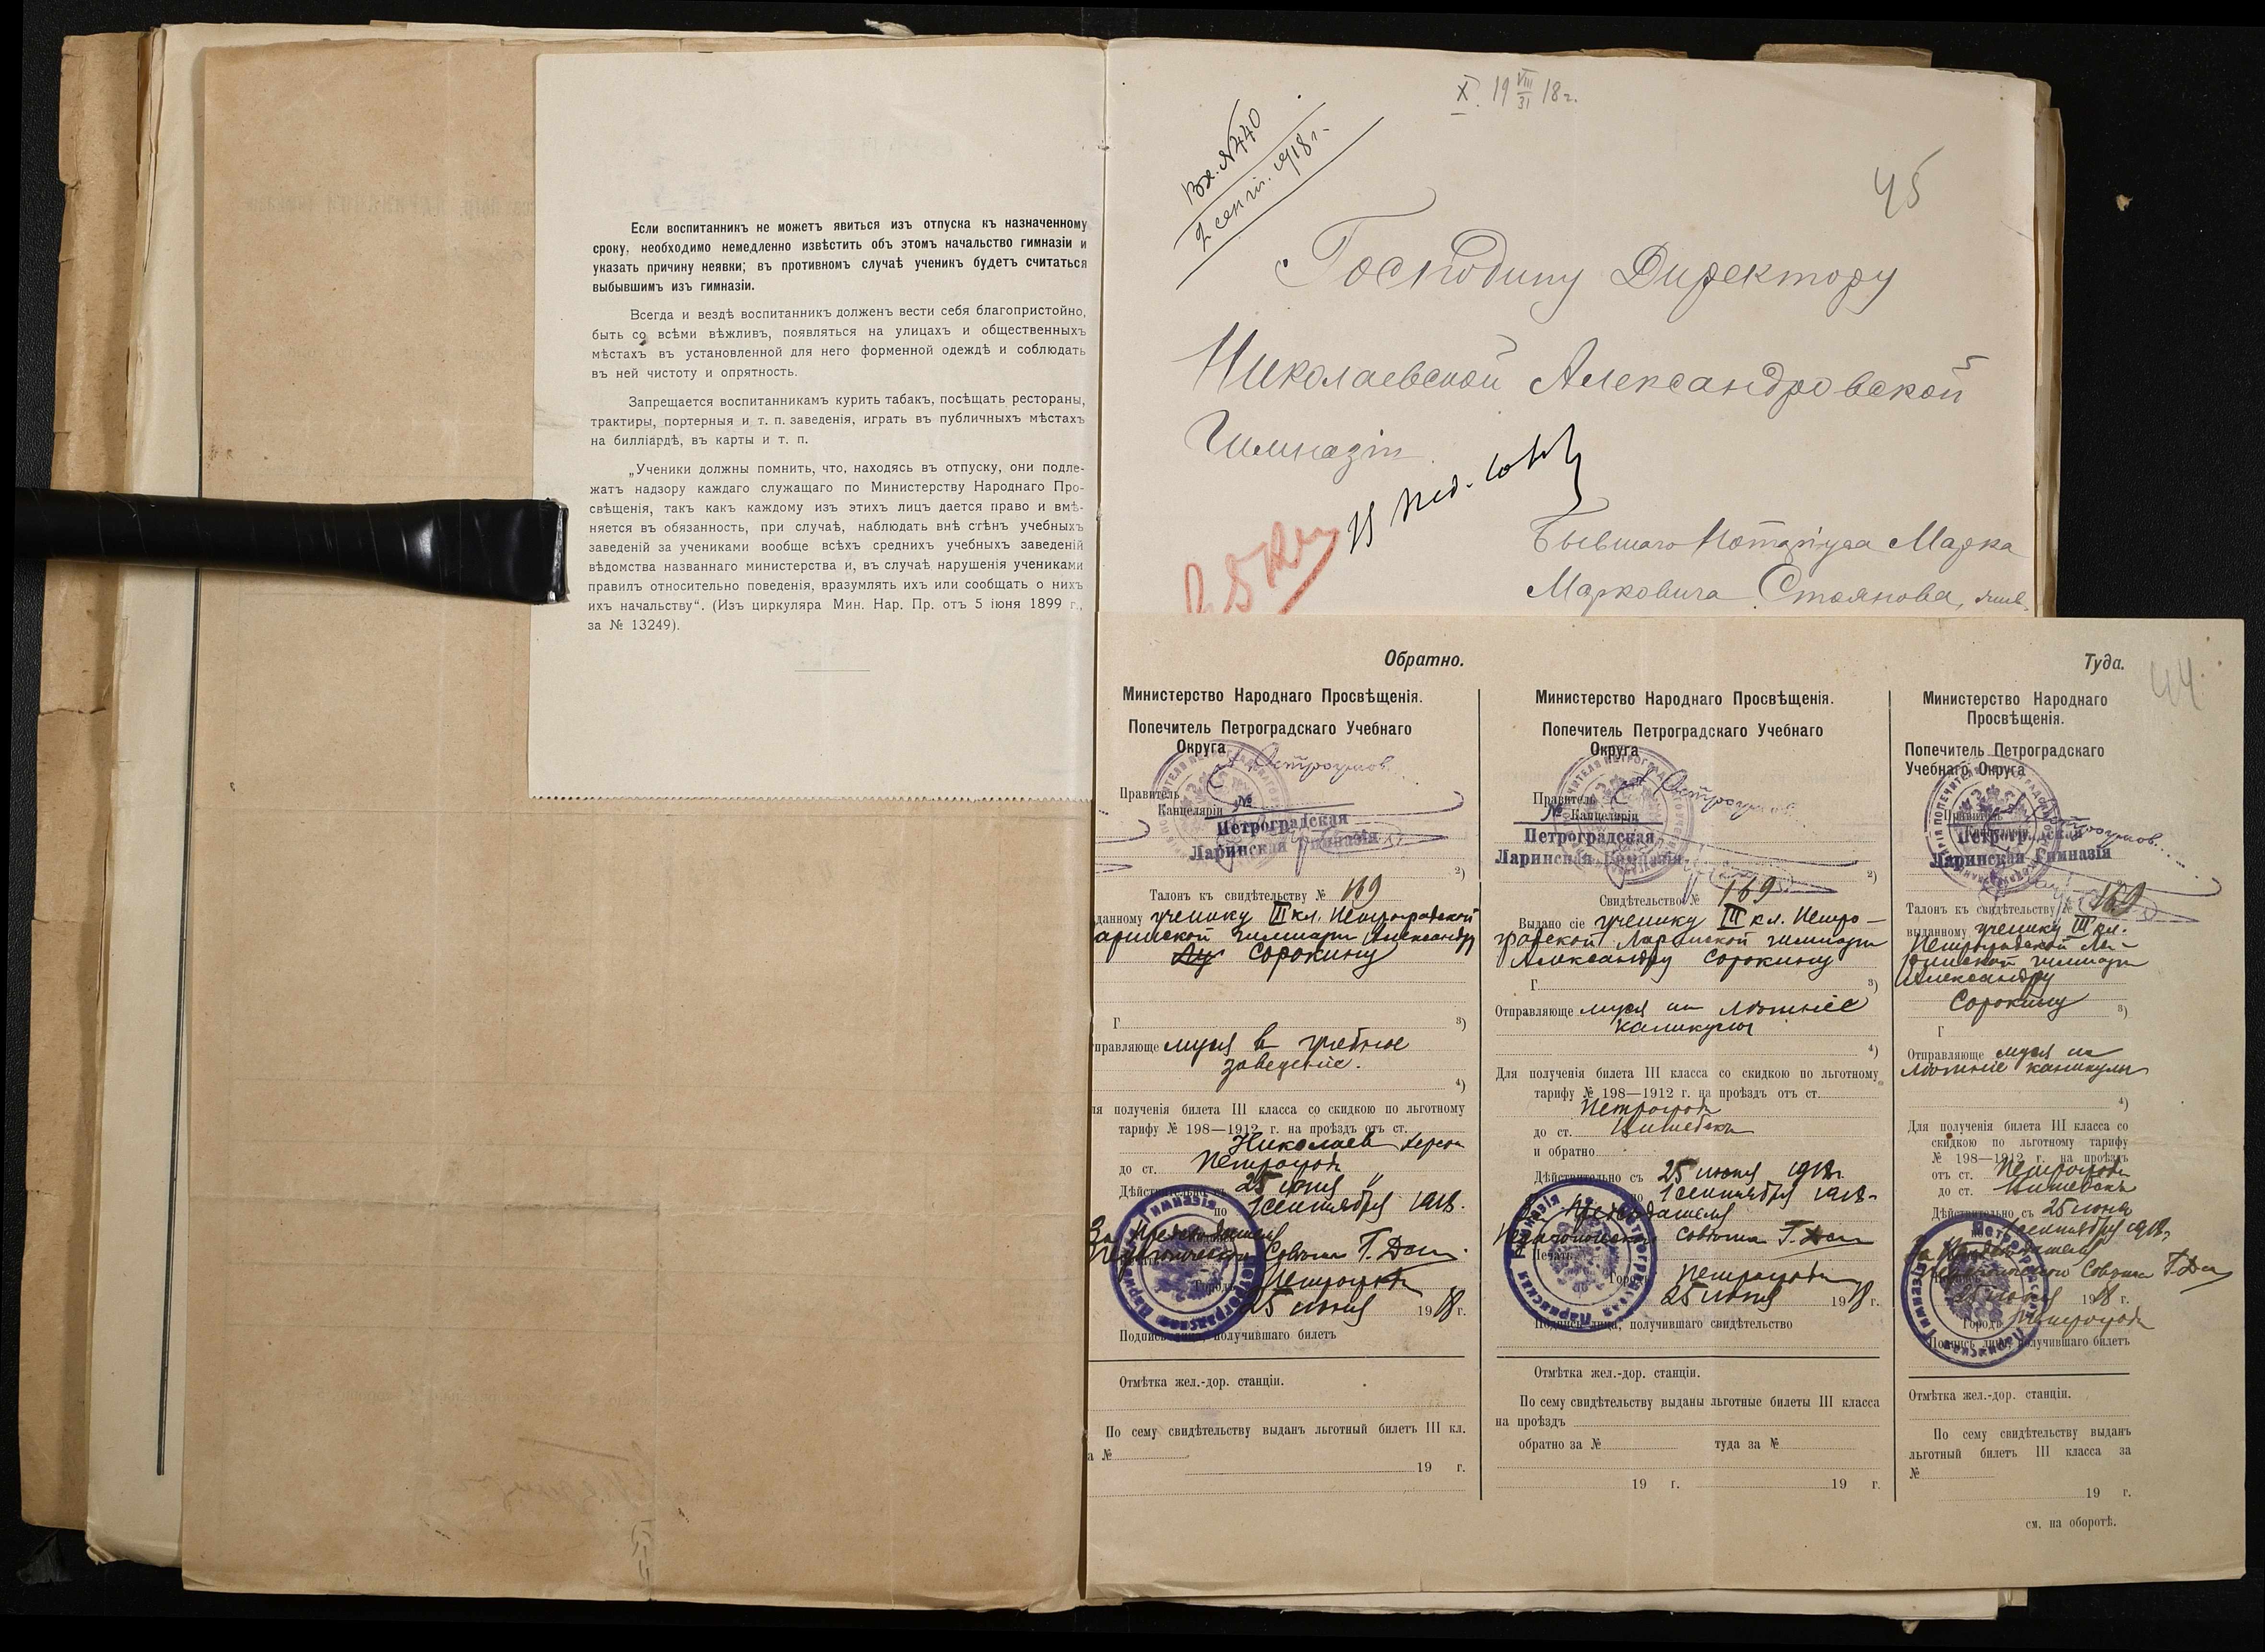 Если воспитанникъ не можетъ явиться изъ отпуска къ назначенному
сроку, необходимо немедленно извѣстить объ этомъ начальство гимназіи и
указать причину неявки; въ противномъ случаѣ ученикъ будетъ считаться
выбывшимъ изъ гимназіи.
Всегда и вездѣ воспитанникъ долженъ вести себя благопристойно,
быть со всѣми вѣжливъ, появляться на улицахъ и общественныхъ
мѣстахъ въ установленной для него форменной одеждѣ и соблюдать
въ ней чистоту и опрятность.
Запрещается воспитанникамъ курить табакъ, посѣщать рестораны,
трактиры, портерныя и т. п. заведенія, играть въ публичныхъ мѣстахъ
на билліардѣ, въ карты и т. п.
„Ученики должны помнить, что, находясь въ отпуску, они подле-
жатъ надзору каждаго служащаго по Министерству Народнаго Про-
свѣщенія, такъ какъ каждому изъ этихъ лицъ дается право и вмѣ-
няется въ обязанность, при случаѣ, наблюдать внѣ стѣнъ учебныхъ
заведеній за учениками вообще всѣхъ среднихъ учебныхъ заведеній
вѣдомства названнаго министерства и, въ случаѣ нарушенія учениками
правилъ относительно поведенія, вразумлять ихъ или сообщать о нихъ
ихъ начальству“. (Изъ циркуляра Мин. Нар. Пр. отъ 5 іюня 1899 г.,
за № 13249).
X. 19 VIII/31 18 г.
Вх. № 440
2 сент. 1918 г.
45
Господину Директору
Николаевской Александровской
Гимназіи
Бывшаго Нотаріуса Марка
Марковича Стоянова,
Обратно.
Министерство Народнаго Просвѣщенія.
Попечитель Петроградскаго Учебнаго
Округа
Правитель
Канцеляріи
№
Петроградская
Ларинская Гимназія
2)
Талонъ къ свидѣтельству № 169
данному ученику III кл. Петроградской
аринской гимназіи Александру
Сорокину
Г 3)
правляющемуся в учебное
заведеніе.
4)
ля полученія билета III класса со скидкою по льготному
тарифу № 198—1912 г. на проѣздъ отъ ст.
Николаев Херсон
до ст. Петроградъ
Дѣйствительно съ 25 іюня "
по 1 сентября 1918.
За Предсѣдателя
Педагогическаго Совѣта Г. Дан
Городъ Петроградъ
25 іюня 1918 г.
Подпись лица, получившаго билетъ
Отмѣтка жел.-дор. станціи.
По сему свидѣтельству выданъ льготный билетъ III кл.
а №
19 г.
Министерство Народнаго Просвѣщенія.
Попечитель Петроградскаго Учебнаго
Округа
Правитель
№ Канцеляріи
Петроградская
Ларинская Гимназія
2)
Свидѣтельство № 169
Выдано сіе ученику III кл. Петро-
градской Ларинской гимназіи
Александру Сорокину
Г 3)
Отправляющемуся на лѣтніе
каникулы
4)
Для полученія билета III класса со скидкою по льготному
тарифу № 198—1912 г. на проѣздъ отъ ст.
Петроградъ
до ст. Витебскъ
и обратно
Дѣйствительно съ 25 іюня 1918 г.
по 1 сентября 1918
Предсѣдателя
Педагогическаго Совѣта Г. Дан
Печать
Городъ Петроградъ
25 іюня 1918 г.
Подпись лица, получившаго свидѣтельство
Отмѣтка жел.-дор. станціи.
По сему свидѣтельству выданы льготные билеты III класса
на проѣздъ
обратно за № туда за №
19 г. 19 г.
Туда.
44
Министерство Народнаго
Просвѣщенія.
Попечитель Петроградскаго
Учебнаго Округа
Петроградская
Ларинская Гимназія
Талонъ къ свидѣтельству № 169
выданному ученику III кл.
Петроградской Ла-
ринской гимназіи
Александру
Сорокину
3)
Г
Отправляющемуся на
лѣтніе каникулы
4)
Для полученія билета III класса со
скидкою по льготному тарифу
№ 198—1912 г. на проѣздъ
отъ ст. Петроградъ
до ст. Витебскъ
Дѣйствительно съ 25 іюня
1 сентября 1918
За Предсѣдателя
Педагогическаго Совѣта Г. Дан
25 іюня 1918 г.
Городъ Петроградъ
Подпись лица, получившаго билетъ
Отмѣтка жел.-дор. станціи.
По сему свидѣтельству выданъ
льготный билетъ III класса за
№
19 г.
см. на оборотѣ.